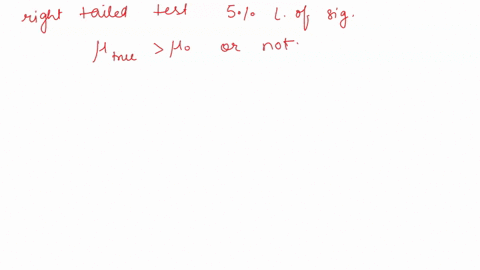 right tailed test 5% L. of sig.
μ true > μ₀ or not.